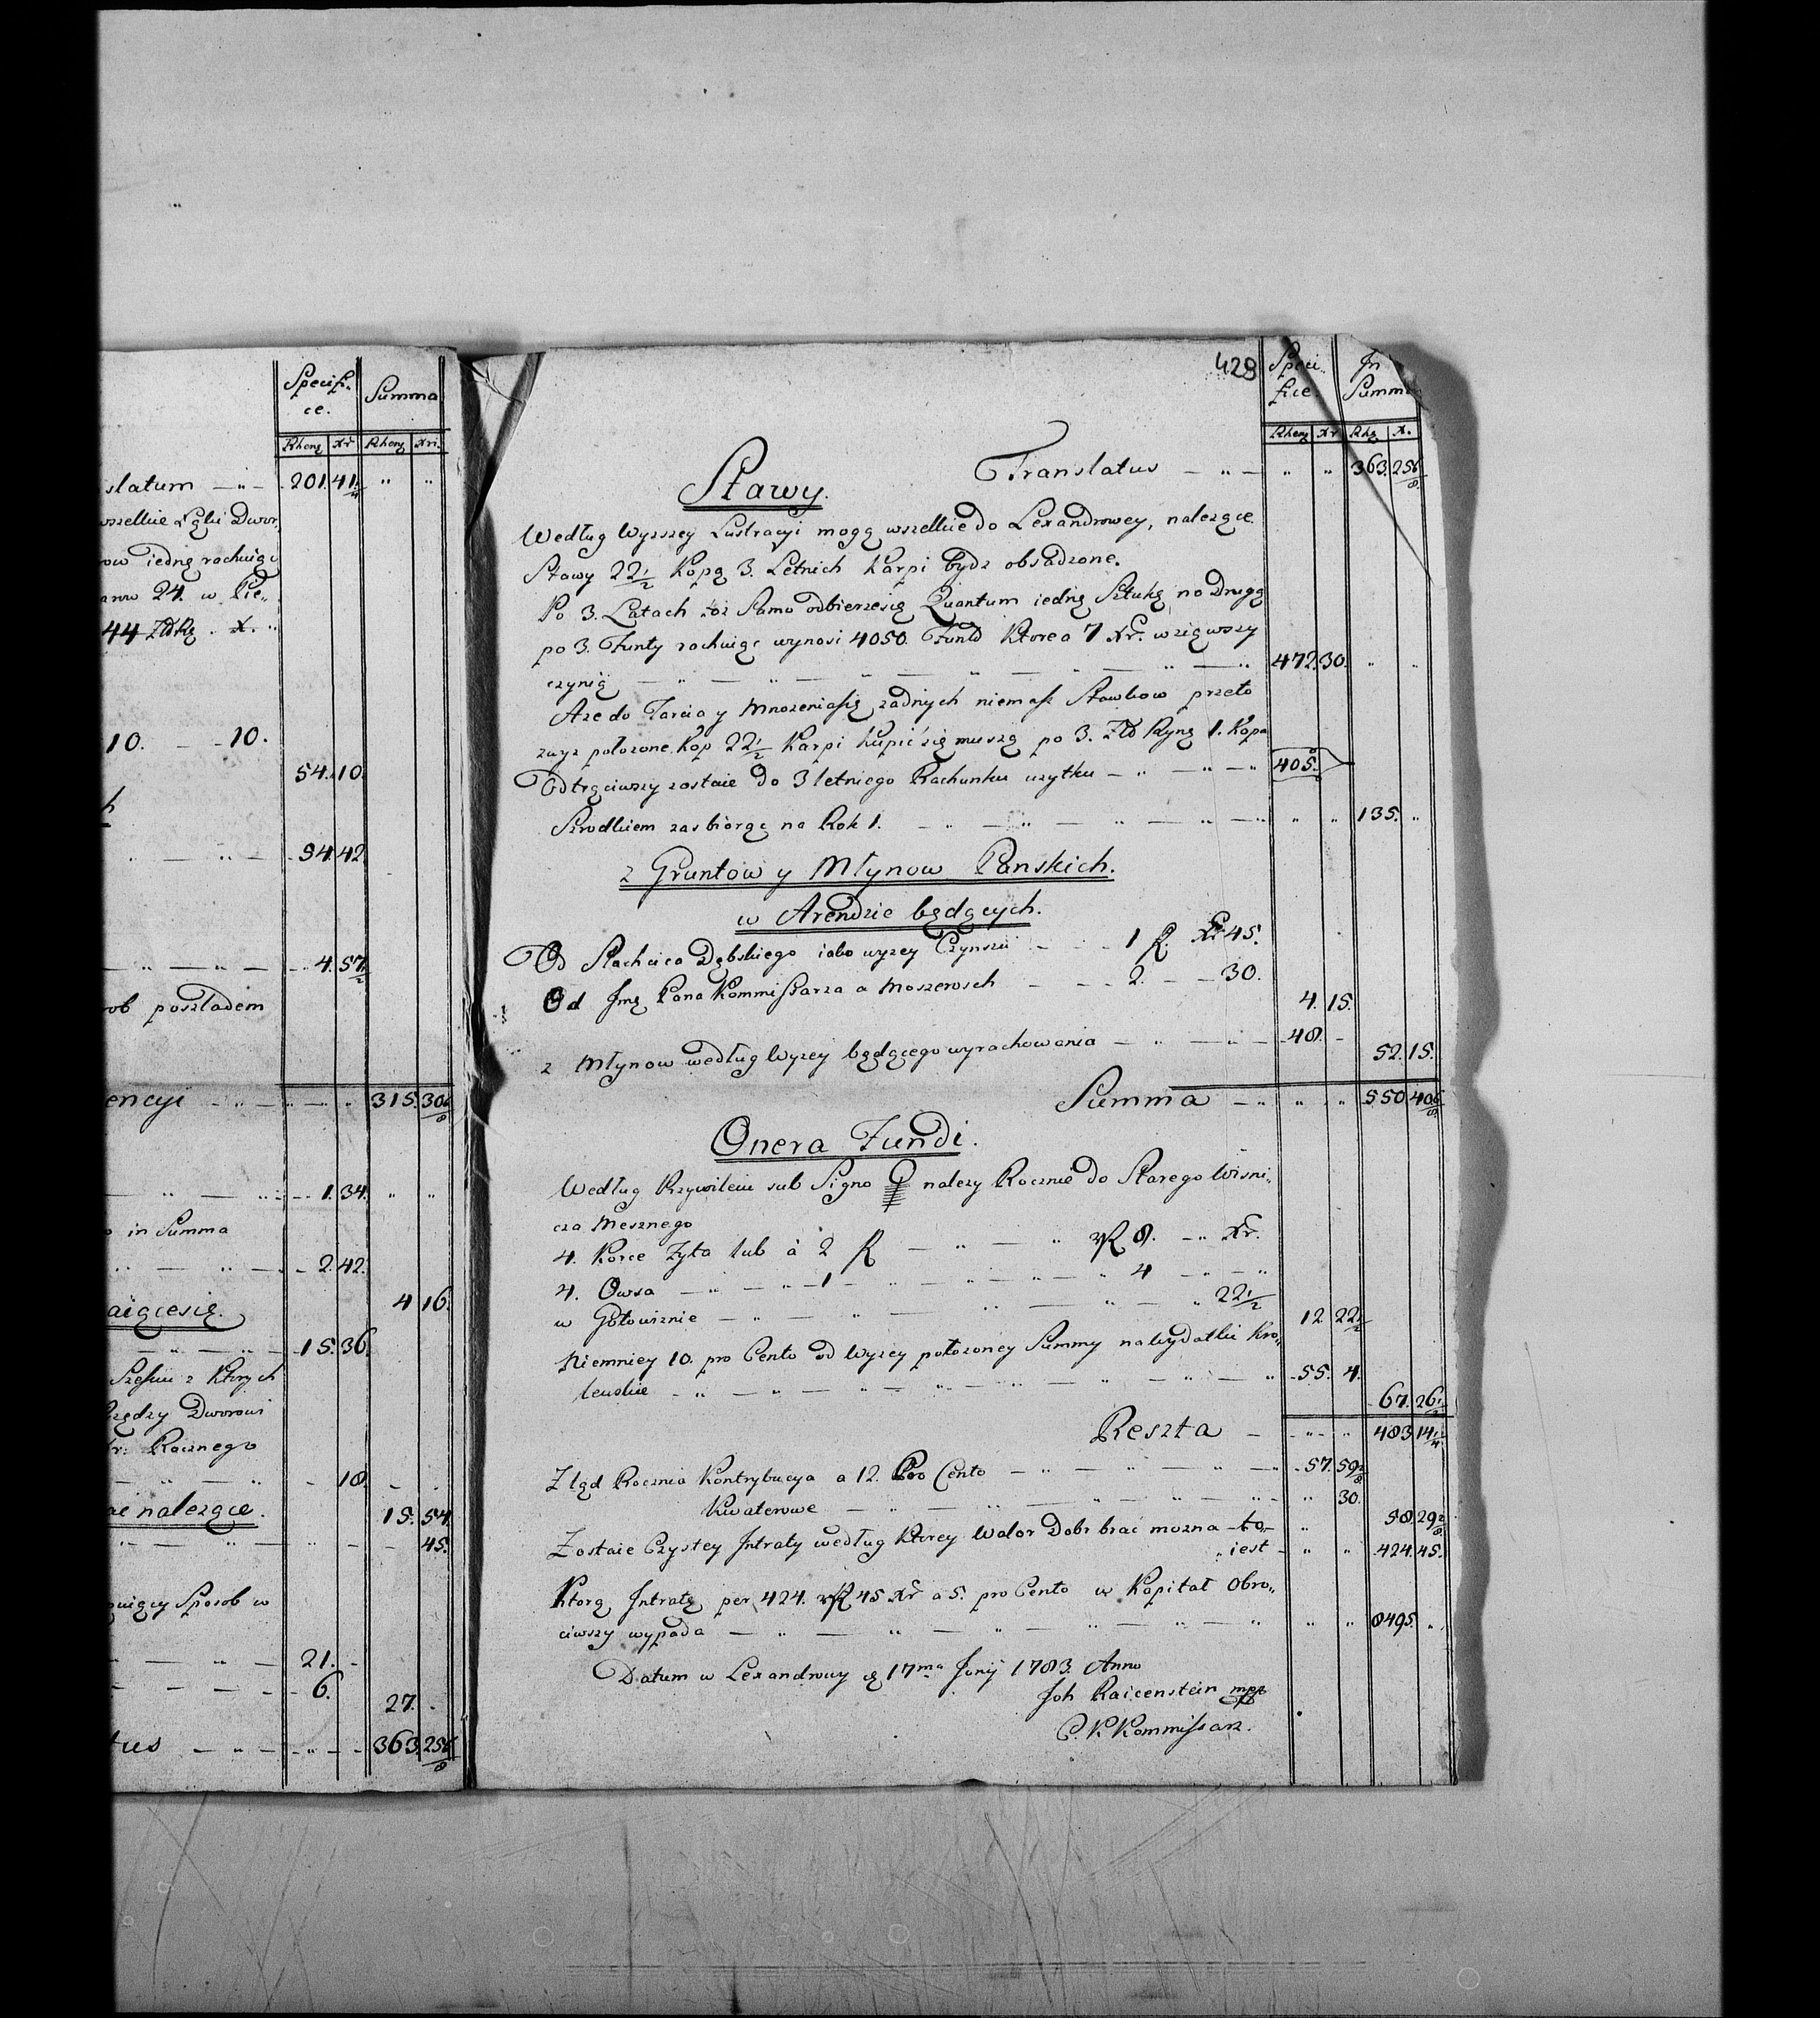 Specifi„ Summa
ce.
Rheng Xr Rheng Xri.
slatum — „ — 201. 41 1/4 „ „
wszelkie Dwor„
iednę rachuiąc
24. w
44 ZłRg. X. „
10. — 10.
54. 10.
„ — „ — 94. 42.
— „ — „ — 4. 57 1/2
posztadem
encyi — „ — „ — „ 315. 30 6/8
— „ — „ — 1. 34. „ „
in Summa
„ — „ — 2. 42.
4 16.
aiącesię.
— „ — „ — 15. 36.
z Ktorych
Dworowi
Rocznego
— „ — „ — 18. — —
należące. 15. 54.
„ — „ — „ — — 45.
Sposob w
„ — „ — 21. —
— — — — 6.
27. —
tus — „ — „ — 363. 25 6/8
429 Speci„ In
fice. Summa
Rheng Xr Rhg X.
Translatus — „ — „ „ 363. 25 6/8
Stawy.
Według Wyzszey Lustracyi mogą wszelkie do Lexandrowey, nalezące
Stawy 22 1/2 Kopą 3. Letnich Karpi bydz obsadzone.
Po 3. Latach toz Samo odbierzesię Quantum iednę Sztukę na Drugą
po 3. Funty rachuiąc wynosi 4050. Funtow Ktore a 7 Xr. wziąwszy
czynią — „ — „ — „ — „ — „ — „ — „ 472. 30. „ „
Aze do Tarcia y Mnozeniasię zadnych niemasz Stawkow przeto
zwyz połozone Kop 22 1/2 Karpi kupić się muszą po 3. Zło Ryng 1. Kopa
Odtrąciwszy zostaie do 3 letniego Rachunku uzytku — „ — „ — „ 405.
Szrodkiem zas biorąc na Rok 1. — „ — „ — „ — „ — „ „ „ 135. „
z Gruntow y Młynow Panskich.
w Arendzie będących.
Od Slachcica Dębskiego iako wyzey Czynszu — — — 1 R. Xr 45.
Od Jmę Pana Kommissarza a Moszewsch — — — 2. — — 30.
4. 15.
z Młynow według Wyzey będącego wyrachowania — „ — „ — 48. —
52. 15.
Summa — „ „ „ 550. 40 6/8
Onera Fundi.
Według Przywileiu sub Signo nalezy Rocznie do Starego Wisni„
cza Mesznego
4. Korce Zyta lub à 2 R — „ — „ R 8. — „ Xr.
4. Owsa — „ — „ — 1 — „ — „ — „ — „ 4 — „ — „
w Gotowiznie — „ — „ — „ — „ — „ 22 1/2
12 22 1/2
Niemniey 10. pro Cento od Wyzey połozoney Summy na Wydatki Kro„
lewskie — „ — „ — „ — „ — „ — „ — „ — „ 55. 4.
67. 26 1/2
Reszta — — „ — „ 483. 14 1/4
Ztąd Roczna Kontrybucya a 12. Pro Cento — „ — „ — „ — 57. 59 2/8
Kwaterowe — „ — „ — „ — „ — „ „ 30.
58. 29 2/8
Zostaie Czystey Intraty według Ktorey Walor Dobr brać mozna — to — „
iest — „ „ 424. 45.
Ktorą Intratę per 424. R 45 Xr a 5. pro Cento w Kapitał Obro„
ciwszy wypada — „ — „ — „ — „ — „ — „ „ „ 8495. „
Datum w Lexandrowy d. 17ma Junij 1783. Anno
Joh Raicenstein mpp
C. K Kommissarz.